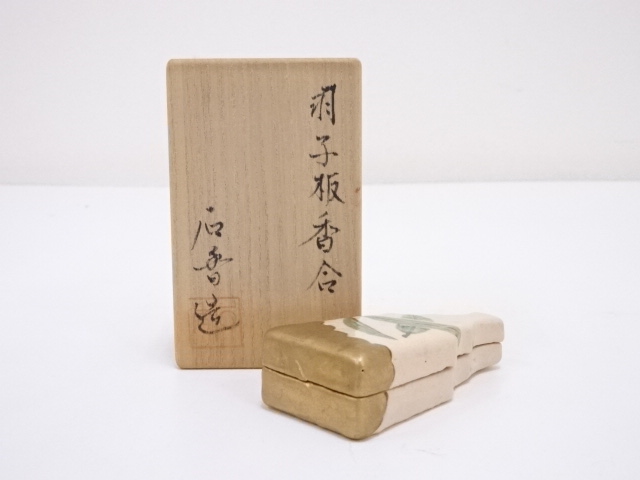 羽子板香合
石香造